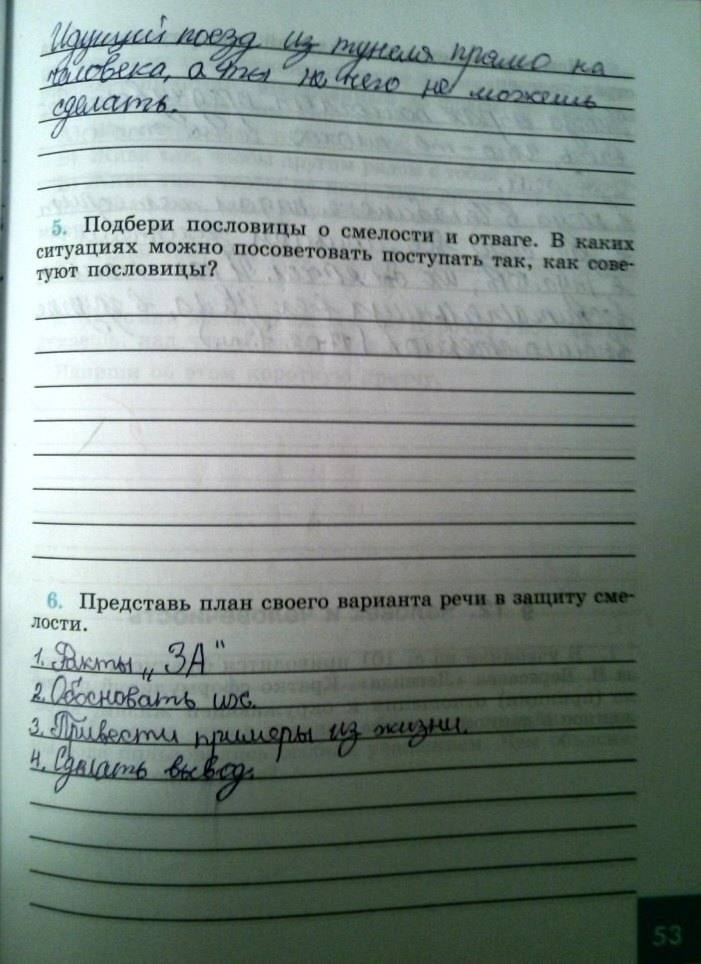 Идущий поезд из тунеля прямо на
человека, а ты на него не можешь
сделать.
5. Подбери пословицы о смелости и отваге. В каких
ситуациях можно посоветовать поступать так, как сове-
туют пословицы?
6. Представь план своего варианта речи в защиту сме-
лости.
1. Факты „ЗА"
2. Обосновать их.
3. Привести примеры из жизни.
4. Сделать вывод.
53